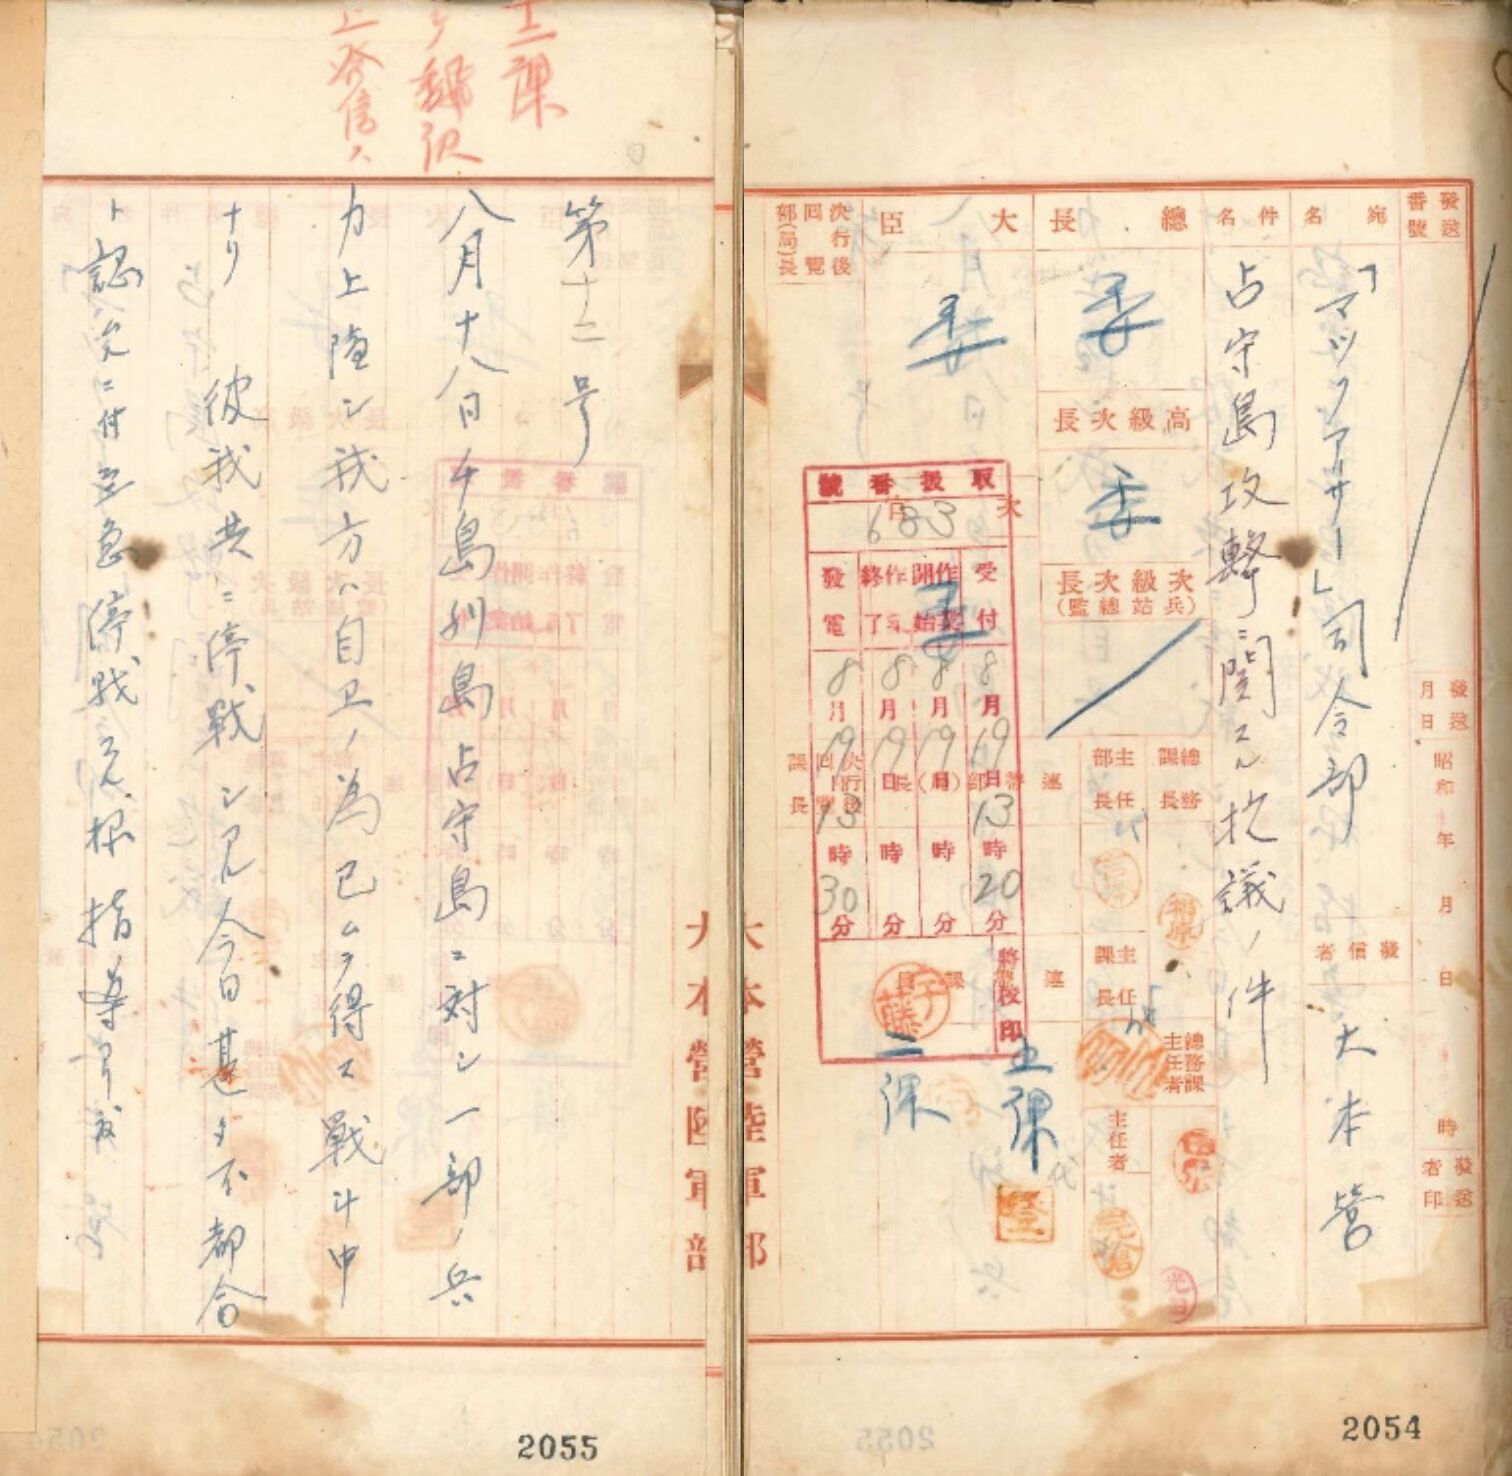 發送番號
宛名
「マックアーサー」司令部 大本営
發送月日
昭和 年 月 日 時
發信者
發送者印
件名
占守島攻撃ニ関スル抗議ノ件
總長
委
高級次長
委
次級次長
(兵站總監)
總務課長
主任部長
主任課長
總務課主任者
主任者
大臣
委
次官
委
決行後回覧
部(局)長
連帶部(局)長
決行後回覧
課長
連帶課長
取扱番號
683
受付
作業開始
作業終了
發電
8月19日13時20分
8月19日 時 分
8月19日 時 分
8月19日13時30分
將校印
五課
代
二課
大本營陸軍部
2054
十二課
翻訳
上発信ス
第十二号
八月十八日千島列島占守島ニ対シ一部ノ兵
力上陸シ我方ハ自卫ノ為已ムヲ得ス戦斗中
ナリ 彼我共ニ停戦シアル今日甚タ不都合
ト認ムルニ付至急停戦スル様指導アリ度
大本營陸軍部
2055